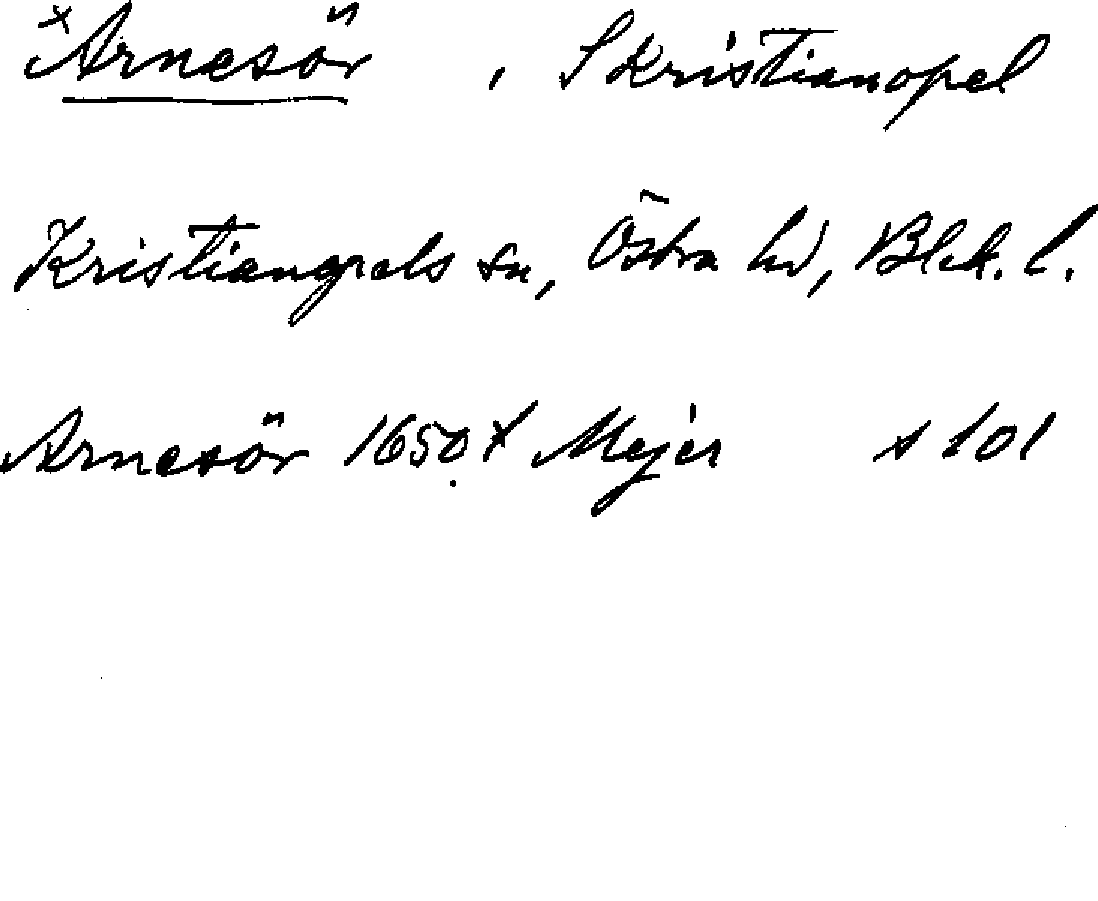 ×Arnesör , S Kristianopel
Kristianopels sn, Östra hd, Blek. l.
Arnesör 1650 t Mejer s 101